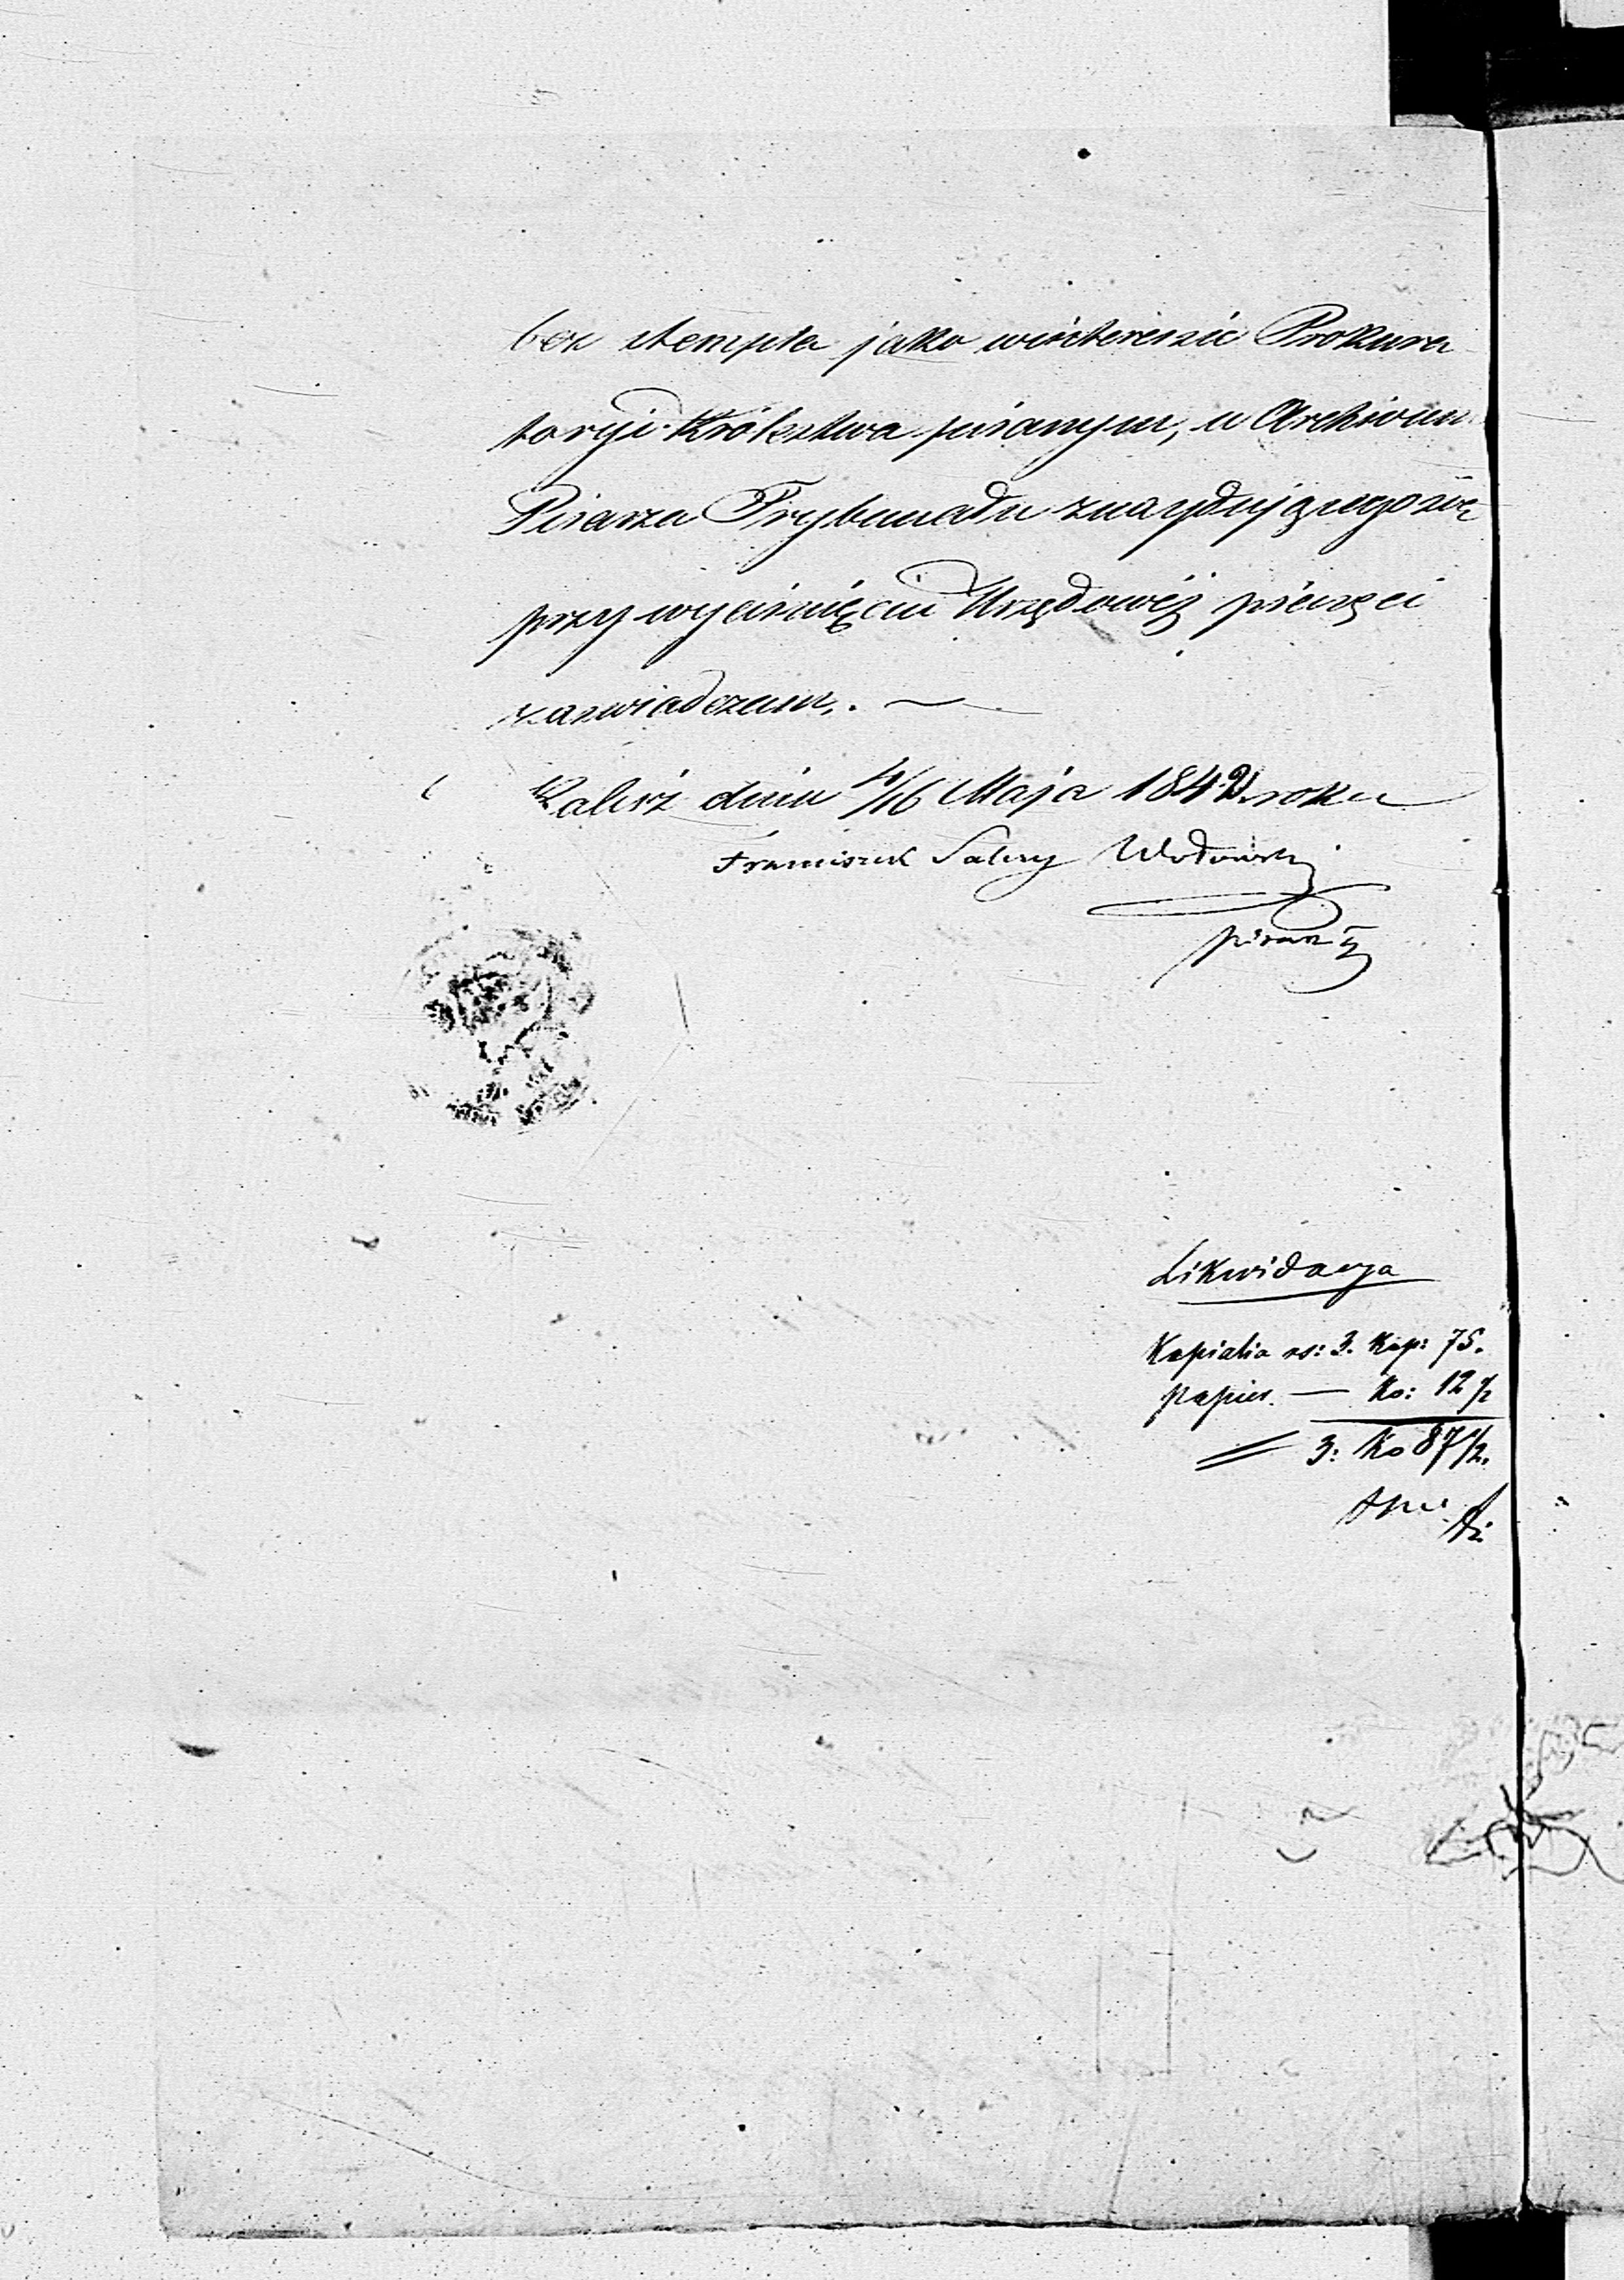 bez stempla jako winteressie Prokura
toryi Królestwa pisanym, w Archiwum
Pisarza Trybunału znaydującego się
przy wyciśnięciu Urzędowéj pieczęci
zaswiadczam. —
Kalisz dnia 4/16 Maja 1842 roku
Franciszek Salezy
pisarz
Likwidacya
Kopialia rs: 3. Kop: 75.
papier. — Ko: 12 1/2
3: Ko 87 1/2.